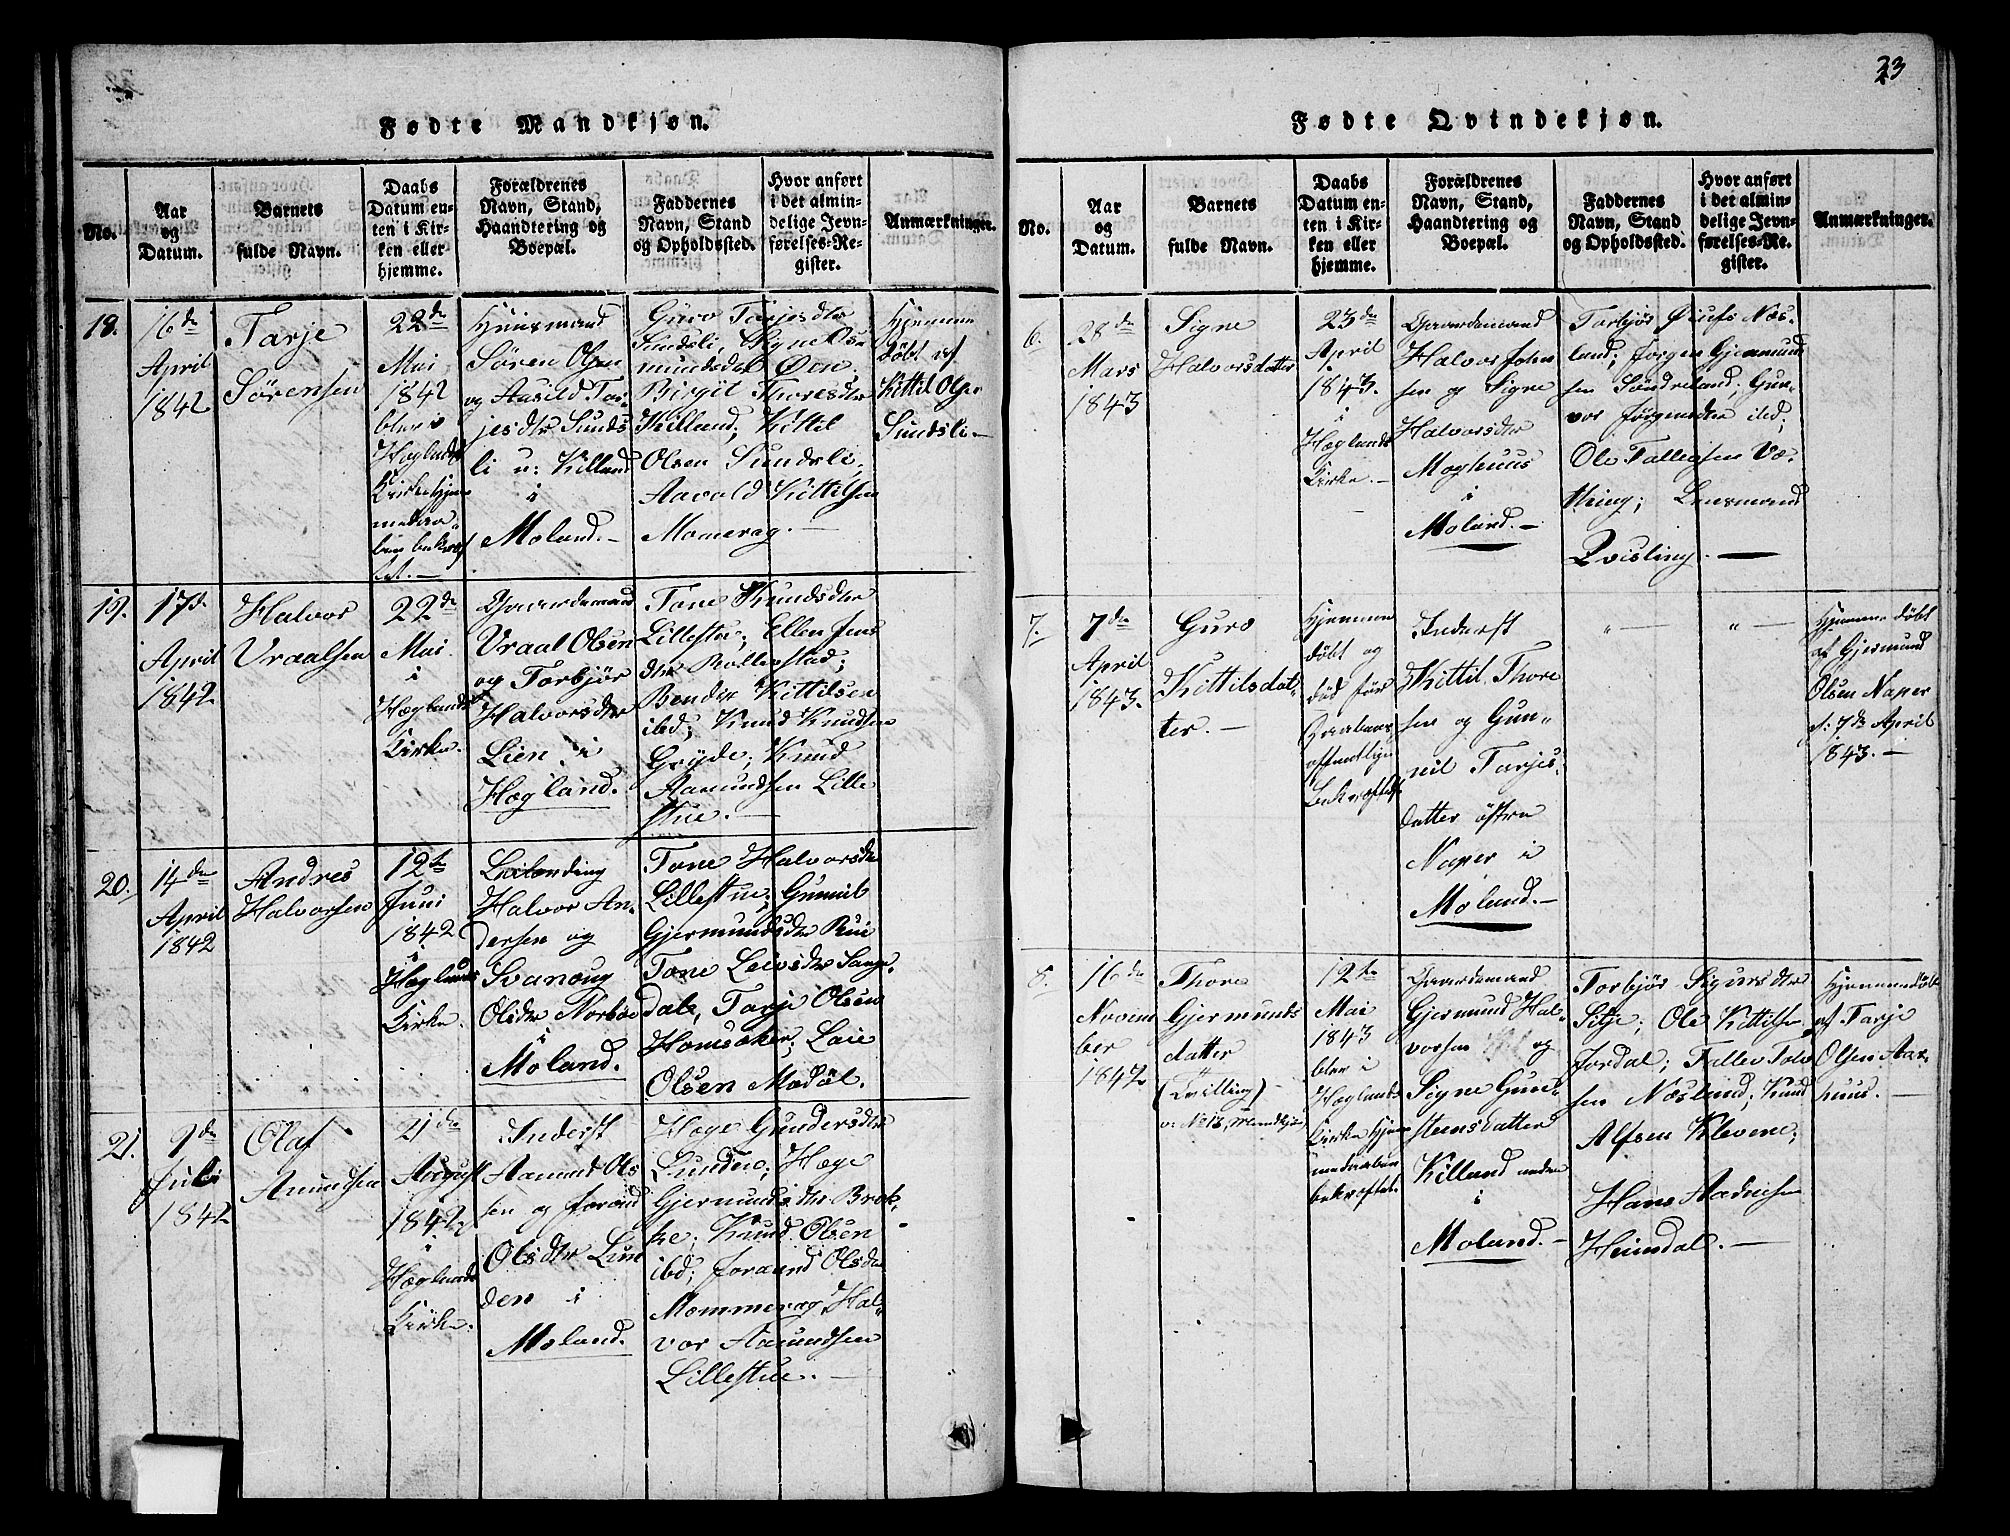 33
Fødte Mandkjøn.
No.
Aar
og
Datum.
Barnets
fulde Navn.
Daabs
Datum en-
ten i Kir-
ken eller
hjemme.
Forældrenes
Navn, Stand,
Haandtering og
Boepæl.
Faddernes
Navn, Stand
og Opholdssted.
Hvor anført
i det almin-
delige Jevn-
førelses-Re-
gister.
Anmærkninger.
18.
16de
April
1842
Tarje
Sørensen
22de
Mai
1842
blev i
Høglands
Kirke Hjem-
medaa-
ben bekræf
tet.
Huusmand
Søren Olsen
og Aasild Tar
jesdtr Sunds
li u: Killand
i
Moland.
Guro Tarjesdtr
Sundsli, Signe Aa
mundsdtr Øen.
Birgit Thoresdtr
Killand; Kittil
Olsen Sundsli.
Aavold Kittilsen
Momerag.
Hjemme
døbt af
Kittil Olsen
Sundsli.
19.
17d.
April
1842
Halvor
Vraalsen
22de
Mai
i
Høglands
Kirke.
Gaardemand
Vraal Olsen
og Torbjør
Halvorsdtr
Lien i
Høgland.
Tone Knudsdtr
Lillestue; Ellen Jens
dtr Rollevstad;
Bendix Kittilsen
ibd; Knud Knudsen
Gryde; Knud
Aamundsen Lille
stue.
20.
14de
April
1842
Andres
Halvorsen
12te
Juni
1842
i
Høglands
Kirke.
Leilænding
Halvor An-
dersen og
Svanoug
Olsdtr Norbøe
i
Moland.
Tone Halvorsdtr
Lillestue; Gunnil
Gjermundsdtr Rui
Tone Leivsdtr Sange
dal, Tarje Olsen
Homsaker; Laie
Olsen Mødøl.
21.
9de
Juli
1842
Olaf
Amundsen
21de
August
1842
i
Høglands
Kirke.
Inderst
Aamund Ols
sen og Joraand
Olsdtr Lun
den i
Moland.
Hæge Gundersdtr
Lunden; Hæge
Gjermundsdtr Brok
ke; Knud Olsen
ibd; Joraand Olsdtr
Mommerag, Hal-
vor Aamundsen
Lillestue.
Fødte Qvindekjøn.
No.
Aar
og
Datum.
Barnets
fulde Navn.
Daabs
Datum en-
ten i Kir-
ken eller
hjemme.
Forældrenes
Navn, Stand,
Haandtering og
Boepæl.
Faddernes
Navn, Stand
og Opholdssted.
Hvor anført
i det almin-
delige Jevn-
førelses-Re-
gister.
Anmærkninger.
6.
28de
Mars
1843
Signe
Halvorsdatter
23de
April
1843.
i
Høglands
Kirke.
Gaardemand
Halvor John
sen og Signe
Halvorsdtr
Moghuus
i
Moland.
Torbjør Næs-
land; Jørgen Gjermund
sen Søndreland; Gun-
vor Jørgensdtr ibd;
Ole Tallegsen Væ-
thing; Lensmand
Qvisling.
7.
7de
April
1843.
Guro
Kittilsdat-
ter.
Hjemme
døbt og
død før
Daaben
offentligen
Bekræftet
Inderst
Kittil Thore
sen og Gun-
nil Tarjes-
datter østre
Naper i
Moland.
" —
" —
Hjemme døbt
af Gjermund
Olsen Naper
d: 7de April
1843.
8.
16de
Novem
ber
1842
Thore
Gjermunds
datter
(Tvilling)
v: No 13, Mandkjøn
12te
Mai
1843
blev i
Høglands
Kirke Hjem
medaaben
bekræftet.
Gaardemand
Gjermund Hal-
vorsen og
Signe Gun-
steensdatter
Killand nedre
i
Moland.
Torbjør Sigursdtr
Sitje; Ole Kittilsen
Jordal; Tallev Tov
sen Næsland; Knud
Alfsen Klevene;
Hans Aadnesen
Heimdal.
Hjemmedøbt
af Tarje
Olsen Aar-
huus.